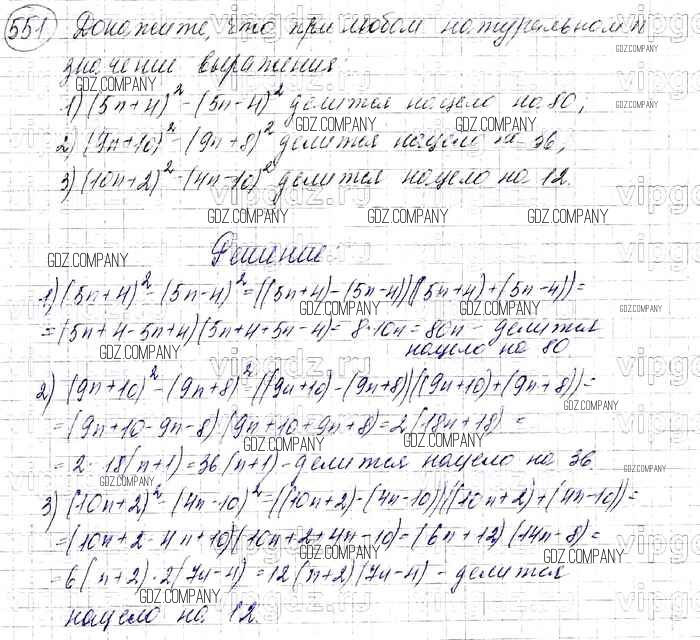 551 Докажите, что при любом натуральном n
значение выражения:
1) (5n+4)² - (5n-4)² делится нацело на 80,
2) (9n+10)² - (9n+8)² делится нацело на 36,
3) (10n+2)² - (4n-10)² делится нацело на 12.
Решение:
1) (5n+4)² - (5n-4)² = ((5n+4) - (5n-4))((5n+4) + (5n-4)) =
= (5n+4-5n+4)(5n+4+5n-4) = 8·10n = 80n - делится
нацело на 80
2) (9n+10)² - (9n+8)² = ((9n+10) - (9n+8))((9n+10) + (9n+8)) =
= (9n+10-9n-8)(9n+10+9n+8) = 2(18n+18) =
= 2·18(n+1) = 36(n+1) - делится нацело на 36.
3) (10n+2)² - (4n-10)² = ((10n+2) - (4n-10))((10n+2) + (4n-10)) =
= (10n+2-4n+10)(10n+2+4n-10) = (6n+12)(14n-8) =
= 6(n+2)·2(7n-4) = 12(n+2)(7n-4) - делится
нацело на 12.